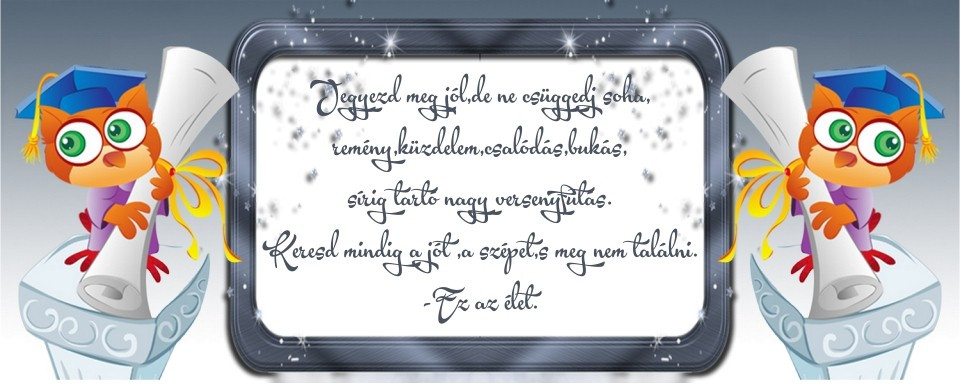 Jegyezd meg jól,de ne csüggedj soha,
remény,küzdelem,csalódás,bukás,
sírig tartó nagy versenyfutás.
Keresd mindig a jót ,a szépet,s meg nem találni.
-Ez az élet.